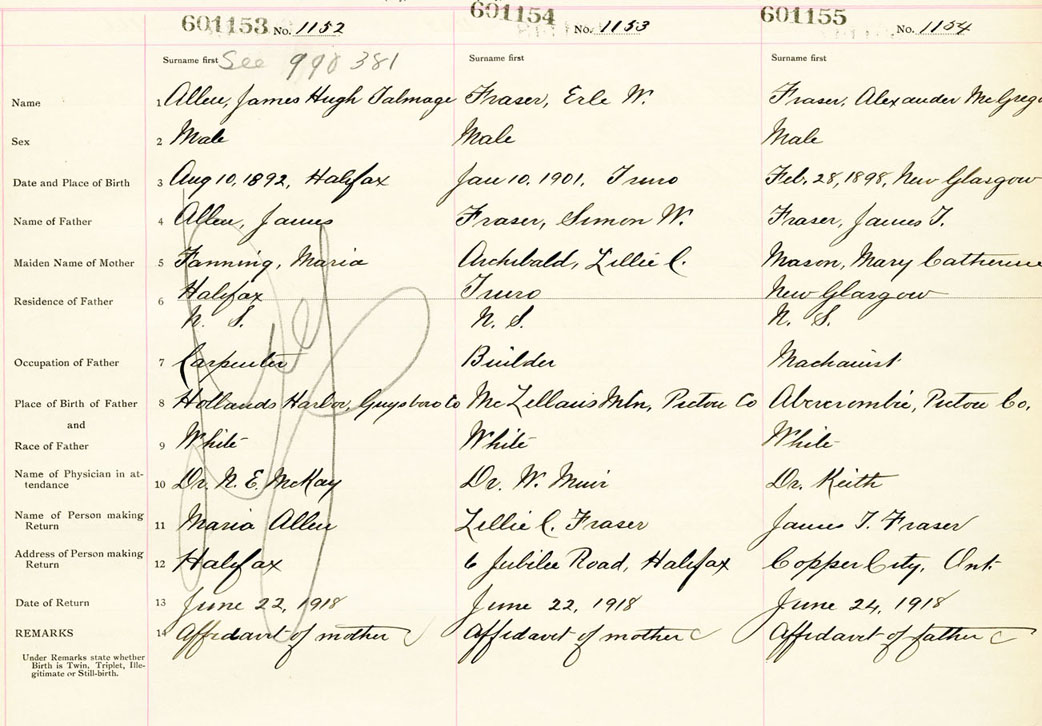 601153 No. 1152
601154 No. 1153
601155 No. 1154
Surname first See 998381
Surname first
Surname first
Name 1 Allen, James Hugh Talmage Fraser, Erle W. Fraser, Alexander McGrego
Sex 2 Male Male Male
Date and Place of Birth 3 Aug 10, 1892, Halifax Jan 10. 1901, Truro Feb. 28, 1898, New Glasgow
Name of Father 4 Allen, James Fraser, Simon W. Fraser, James T.
Maiden Name of Mother 5 Fanning, Maria Archibald, Lillie C. Mason, Mary Catherine
Residence of Father 6 Halifax Truro New Glasgow
N. S. N. S. N. S.
Occupation of Father 7 Carpenter Builder Machinist
Place of Birth of Father 8 Hollands Harbor, Guysboro Co McLellans Mtn, Pictou Co Abercrombie, Pictou Co.
and
Race of Father 9 White White White
Name of Physician in at-
tendance 10 Dr. N. E. McKay Dr. W. Muir Dr. Keith
Name of Person making
Return 11 Maria Allen Lillie C. Fraser James T. Fraser
Address of Person making
Return 12 Halifax 6 Jubilee Road, Halifax Copper City, Ont.
Date of Return 13 June 22, 1918 June 22, 1918 June 24, 1918
REMARKS 14 Affidavit of mother Affidavit of mother Affidavit of father
Under Remarks state whether
Birth is Twin, Triplet, Ille-
gitimate or Still-birth.